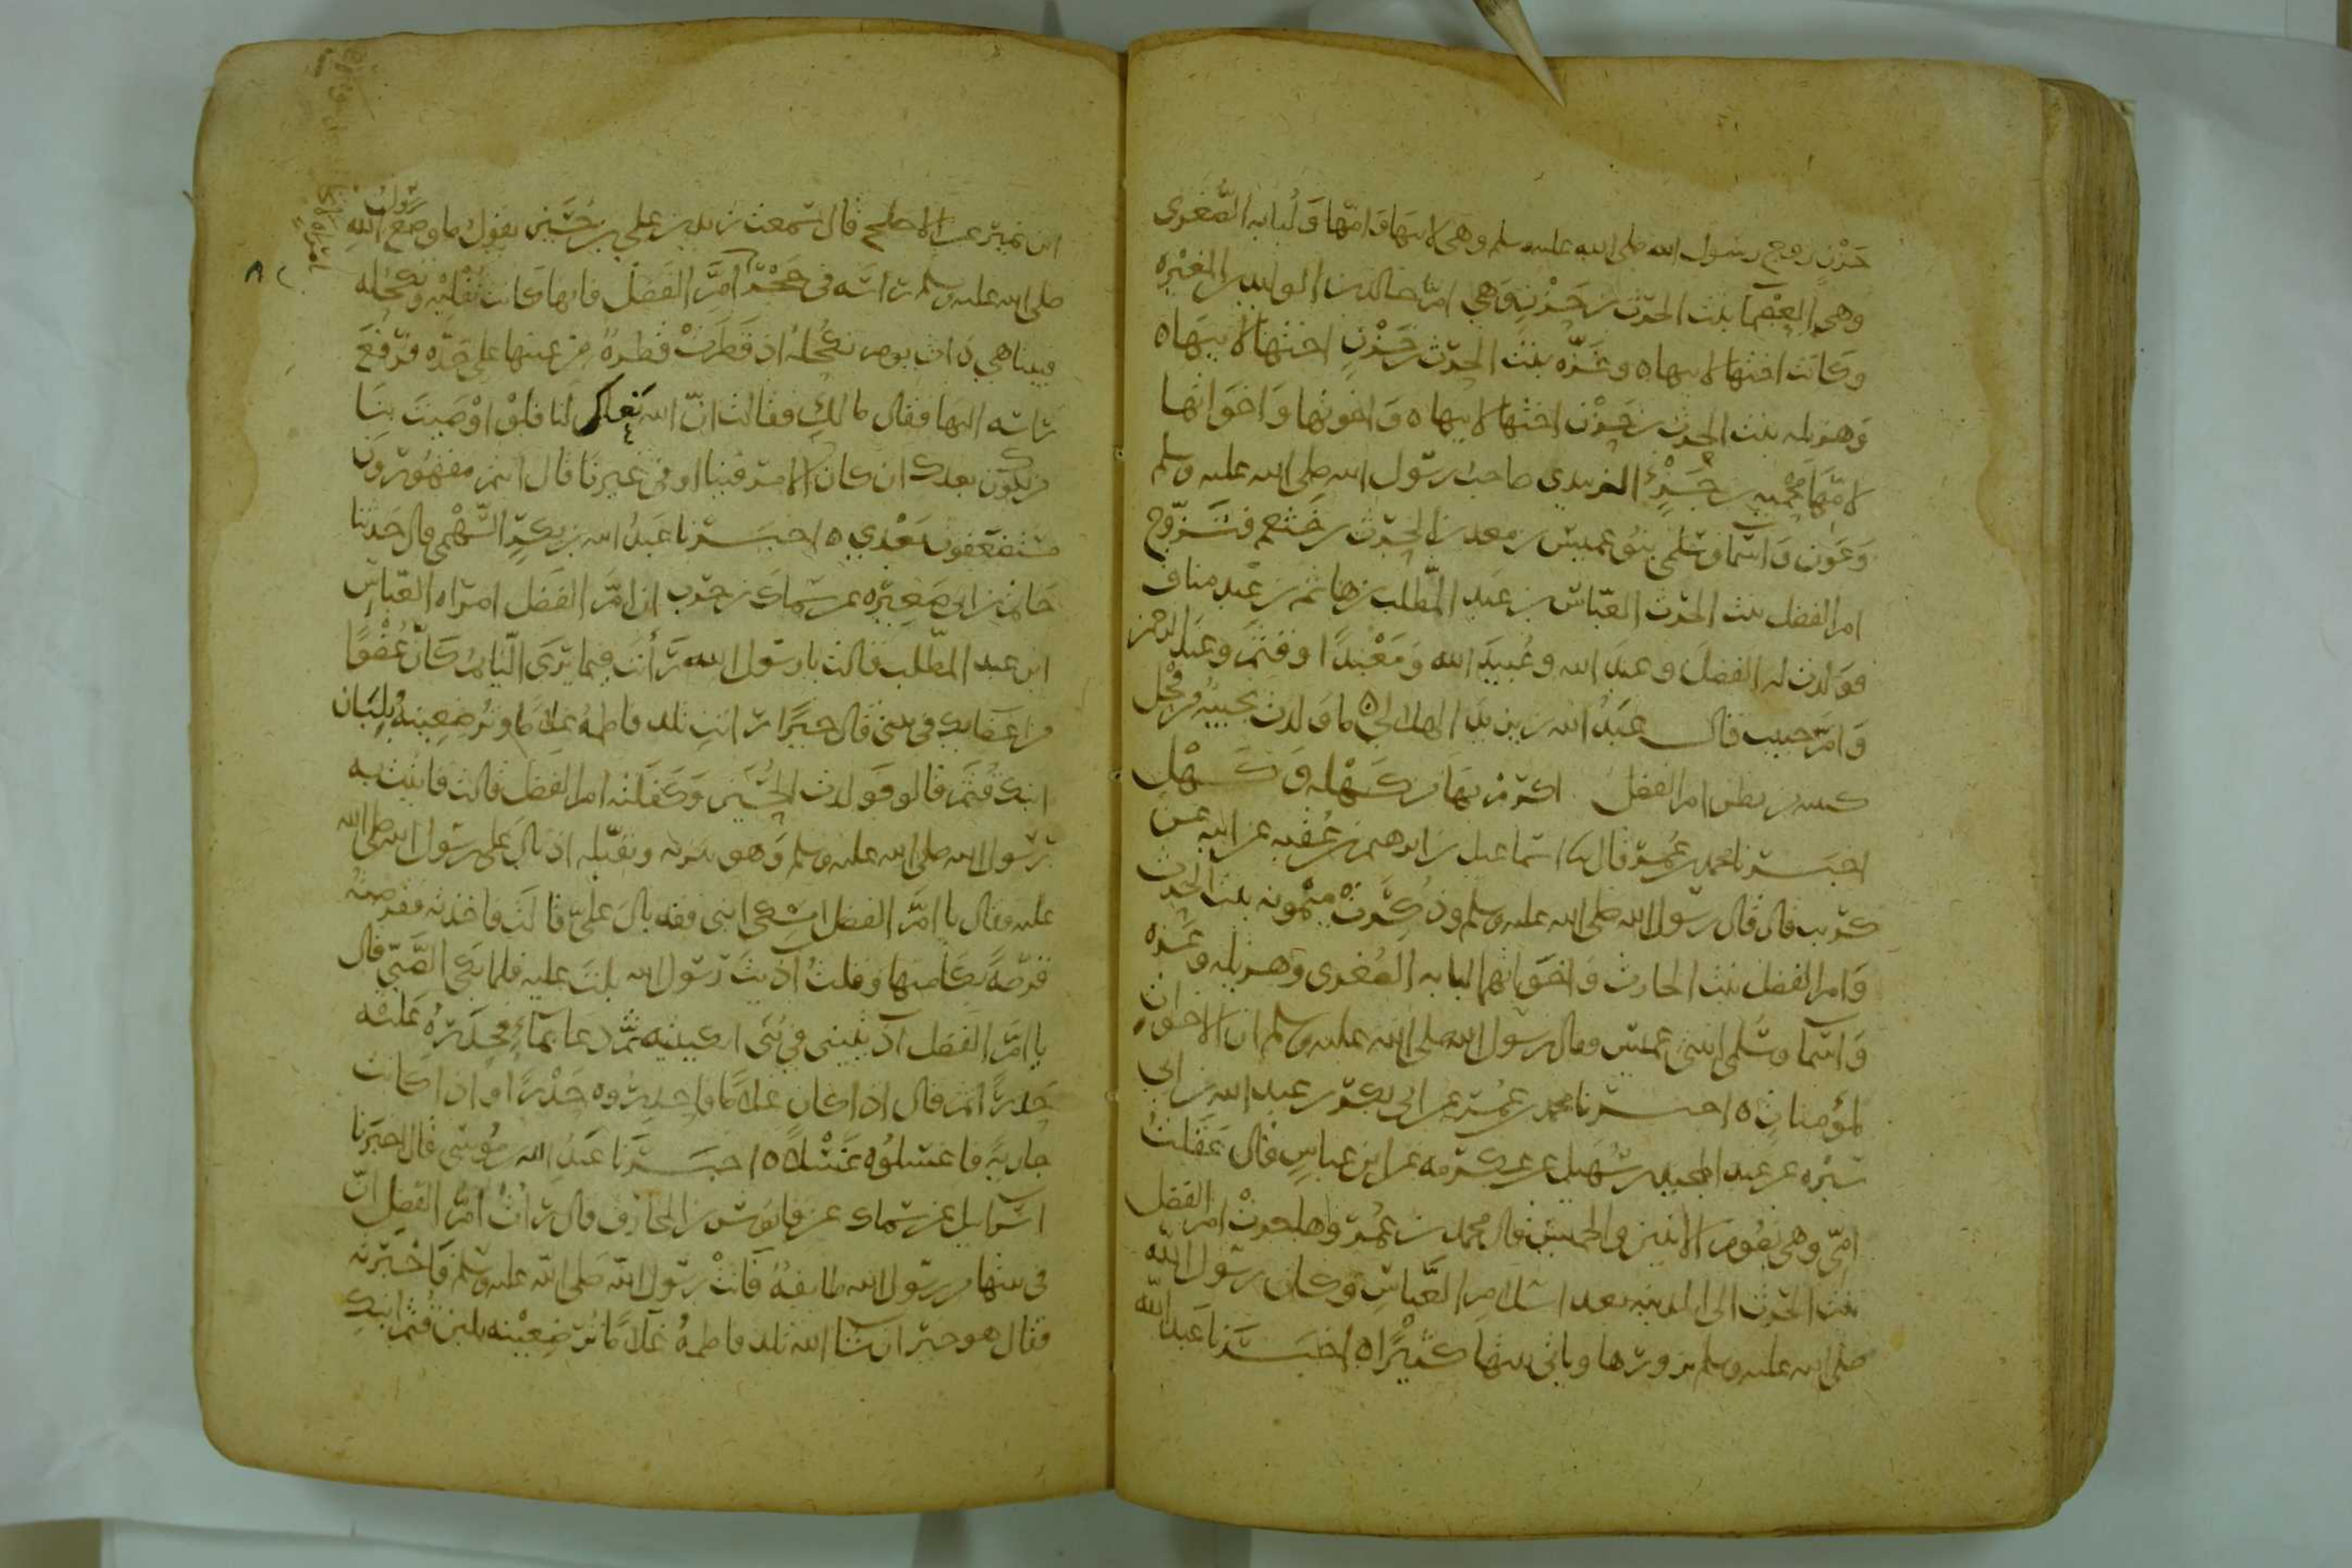 حزن زوج رسول الله صلى الله عليه وسلم وهي لابيها وامها ولبابه الصغرى
وهي العصما بنت الحرث بن حزن وهي ام خالد بن الوليد بن المغيره
وكانت اختها لابيها ه وعزه بنت الحرث بن حزن اختها لابيها ه
وهزيله بنت الحرث بن حزن اختها لابيها ه واخوتها واخواتها
لامها محميه بن جزء الزبيدي صاحب رسول الله صلى الله عليه وسلم
وعون واسما وسلمى بنو عميس بن معد بن الحرث بن خثعم فتزوج
ام الفضل بنت الحرث العباس بن عبد المطلب بن هاشم بن عبد مناف
فولدت له الفضل وعبد الله وعبيد الله ومعبدا وقثم وعبد الرحمن
وام حبيب فقال عبد الله بن يزيد الهلالي ه ما ولدت نجيبه من فحل
كسته من بطن ام الفضل اكرم بها من كهله وكهل
اخبرنا محمد بن عمر قال نا اسماعيل بن ابرهيم بن عقبه عن ابيه عن
كريب قال قال رسول الله صلى الله عليه وسلم وذكرت ميمونه بنت الحرث
وام الفضل بنت الحارث واخواتهما لبابه الصغرى وهزيله وعزه
واسما وسلمى ابنتي عميس فقال رسول الله صلى الله عليه وسلم ان الاخوات
لمؤمنات ه اخبرنا محمد بن عمر عن ابي بكر بن عبد الله بن ابي
سبره عن عبد المجيد بن سهيل عن عكرمه عن ابن عباس قال عقلت
امي وهي تصوم الاثنين والخميس قال محمد بن عمر وهاجرت ام الفضل
بنت الحرث الى المدينه بعد اسلام العباس وكان رسول الله
صلى الله عليه وسلم يزورها وياتي بيتها كثيرا ه اخبرنا عبد الله
ابن نمير عن الاجلح قال سمعت زيد بن علي بن حسين يقول ما وضع رسول الله
صلى الله عليه وسلم راسه في حجر ام الفضل فانها كانت تفليه وتكحله
فبينا هي ذات يوم تكحله اذ قطرت قطرة من عينها على خده فرفع
راسه اليها فقال ما لك فقالت ان الله نعاك لنا فلو اوصيت بنا
من يكون بعدك ان كان الامر فينا او في غيرنا قال انتم مقهورون
مستضعفون بعدي ه اخبرنا عبد الله بن بكر السهمي قال حدثنا
حاتم بن ابي صغيره عن سماك بن حرب ان ام الفضل امراه العباس
ابن عبد المطلب قالت يا رسول الله رأيت فيما يرى النايم كان عضوا
من اعضايك في بيتي قال خيرا رايت تلد فاطمه غلاما وترضعينه بلبان
ابنك قثم قالو فولدت الحسين وكفلته ام الفضل قالت فاتيت به
رسول الله صلى الله عليه وسلم وهو ينزيه ويقبله اذ بال على رسول الله صلى الله
عليه فقال يا ام الفضل امسكي ابني فقد بال علي قالت فاخذته فقرصته
قرصة بكا منها وقلت آذيت رسول الله بلت عليه فلما بكى الصبي قال
يا ام الفضل آذيتيني في بني ابكيتيه ثم دعا بماء فحدره عليه
حدرا ثم قال اذا كان غلاما فاحدروه حدرا واذا كانت
جارية فاغسلوه غسلا ه اخبرنا عبيد الله بن موسى قال اخبرنا
اسرايل عن سماك عن قابوس بن المخارق قال رأت ام الفضل ان
في بيتها من رسول الله طايفة فاتت رسول الله صلى الله عليه وسلم فاخبرته
فقال هو خير ان شا الله تلد فاطمة غلاما ترضعينه بلبن قثم ابنك